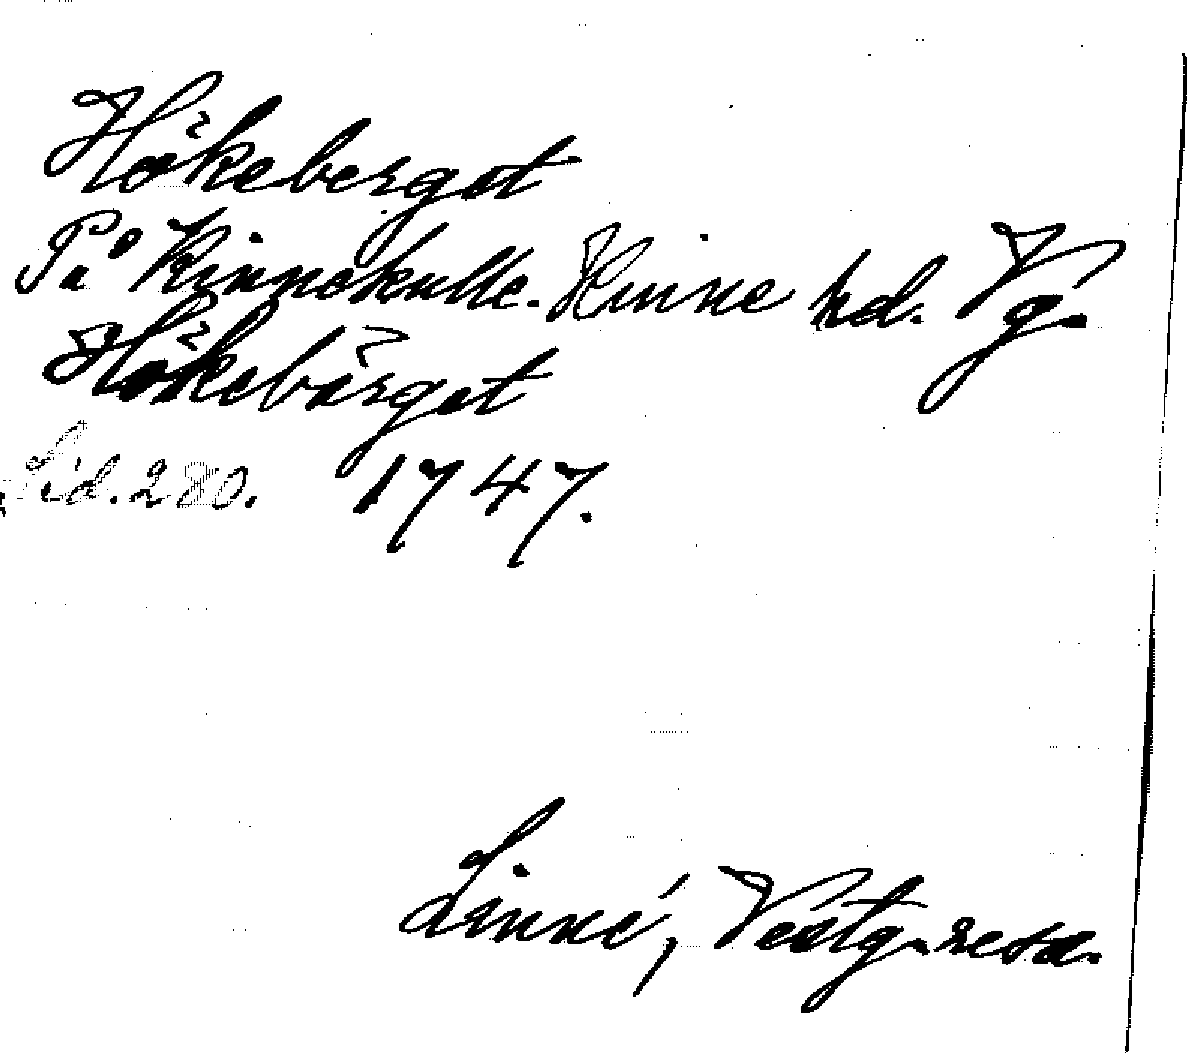 Hökeberget
På Kinnekulle. Kinne hd. Vg.
Hökebärget
Sid. 280. 1747.
Linné, Vestg. resa.